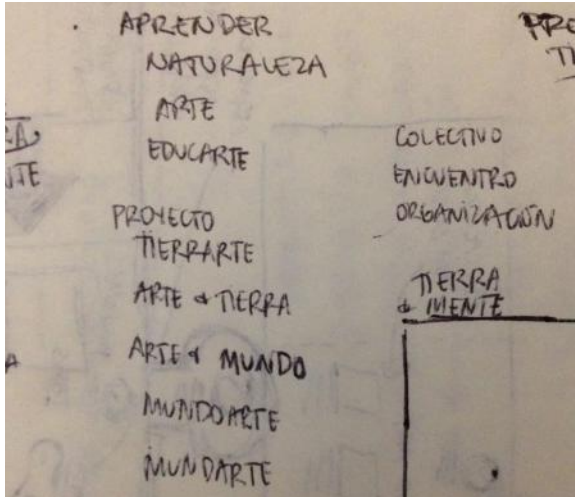 APRENDER
NATURALEZA
ARTE
EDUCARTE
PROYECTO
TIERRARTE
ARTE & TIERRA
ARTE & MUNDO
MUNDOARTE
MUNDARTE
COLECTIVO
ENCUENTRO
ORGANIZACIÓN
TIERRA
& MENTE